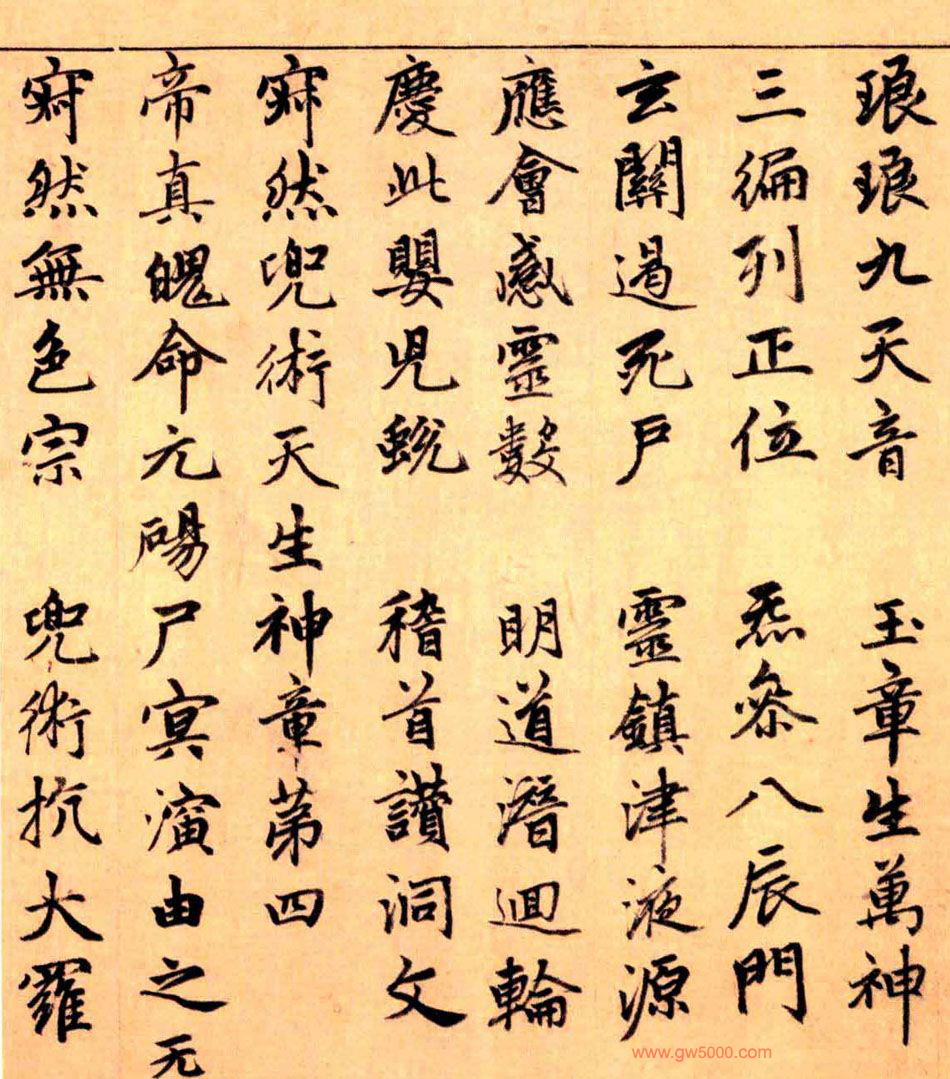 琅琅九天音 玉章生萬神
三徧列正位 炁叅八辰門
玄關過死戶 靈鎮津液源
應會感靈數 明道潛迴輪
慶此嬰兒蛻 稽首讃洞文
寂然兜術天生神章第四
帝真魄命元碭尸冥演由之炁
寂然無色宗 兜術抗大羅
www.gw5000.com